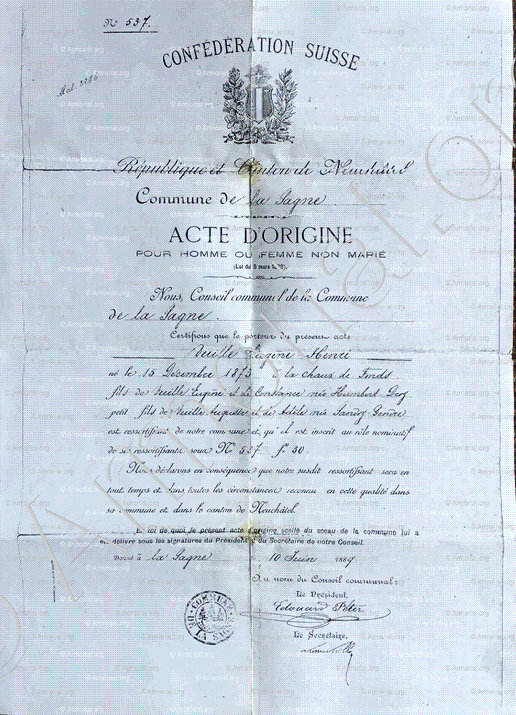 N° 537.
CONFÉDÉRATION SUISSE
République et Canton de Neuchâtel
Commune de la Sagne
ACTE D'ORIGINE
POUR HOMME OU FEMME NON MARIÉ
Nous, Conseil communal de la Commune
de la Sagne.
Certifions que le porteur du présent acte
Vuille Eugène Henri
né le 15 Décembre 1873 à la Chaux de Fonds
fils de Vuille Eugène et de Constance née Humbert Droz
petit fils de Vuille Auguste et de Adèle née Sandoz Gendre
est ressortissant de notre commune et qu'il est inscrit au rôle nominatif
de ses ressortissants sous N° 537 f° 30.
Nous déclarons en conséquence que notre susdit ressortissant sera en
tout temps et dans toutes les circonstances reconnu en cette qualité dans
sa commune et dans le canton de Neuchâtel.
En foi de quoi le présent acte d'origine scellé du sceau de la commune lui a
été délivré sous les signatures du Président et du Secrétaire de notre Conseil.
Donné à la Sagne le 10 Juin 1889.
Au nom du Conseil communal:
Le Président,
Edouard Péter
Le Secrétaire,
COMMUNE DE LA SAGNE
© Armorial.org